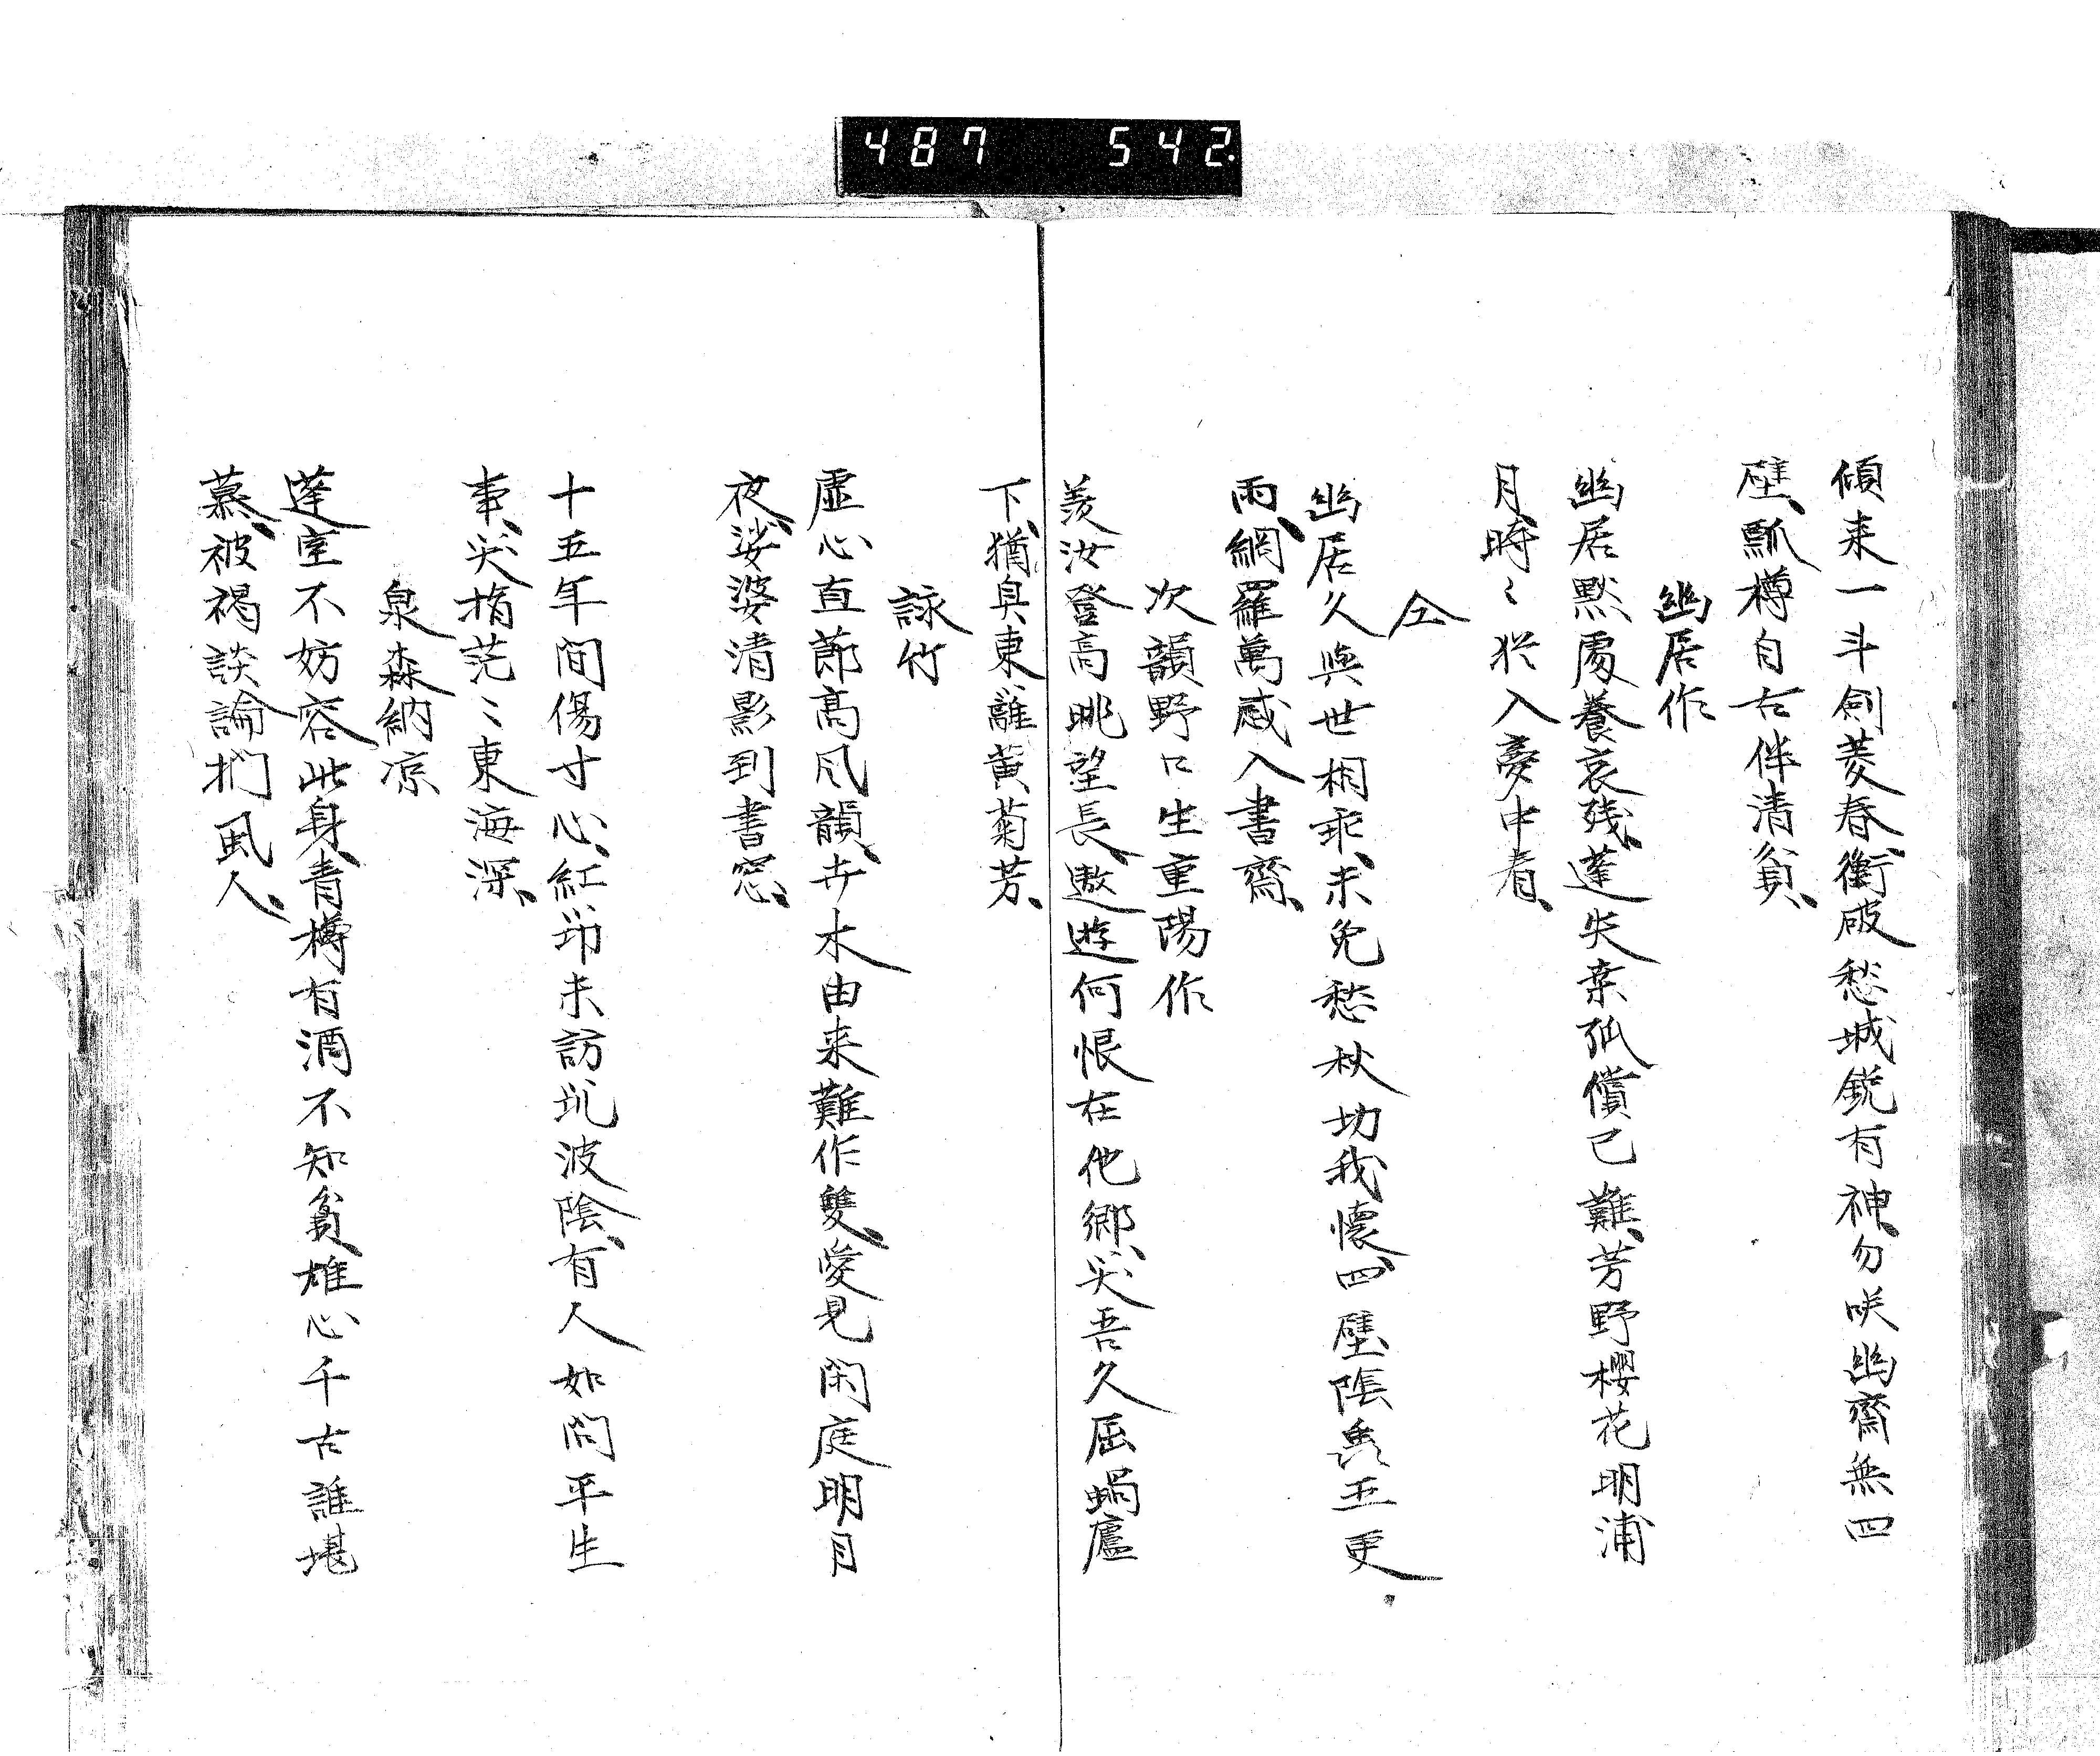 487 542.
傾来一斗劍菱春、衝破愁城鋭有神、勿咲幽齋無四
壁、瓢樽自古伴清貧、
幽居作
幽居黙處養衰残、蓬矢桒弧償已難、芳野櫻花明浦
月、時〻猶入夢中看、
仝
幽居久與世相乖、未免愁秋切我懷、四壁陰蛩五更
雨、網羅萬感入書齋、
次韻野口生重陽作
羨汝登高眺望長、遨遊何恨在他郷、咲吾久屈蝸廬
下、猶臭東籬黄菊芳、
詠竹
虚心直節高風韻、卉木由来難作雙、愛見閑庭明月
夜、娑婆清影到書窓、
十五年間傷寸心、紅茆未訪汎波陰、有人如問平生
事、咲指茫〻東海深、
泉森納凉
蓬室不妨容此身、青樽有酒不知貧、雄心千古誰堪
慕、被褐談論捫虱人、